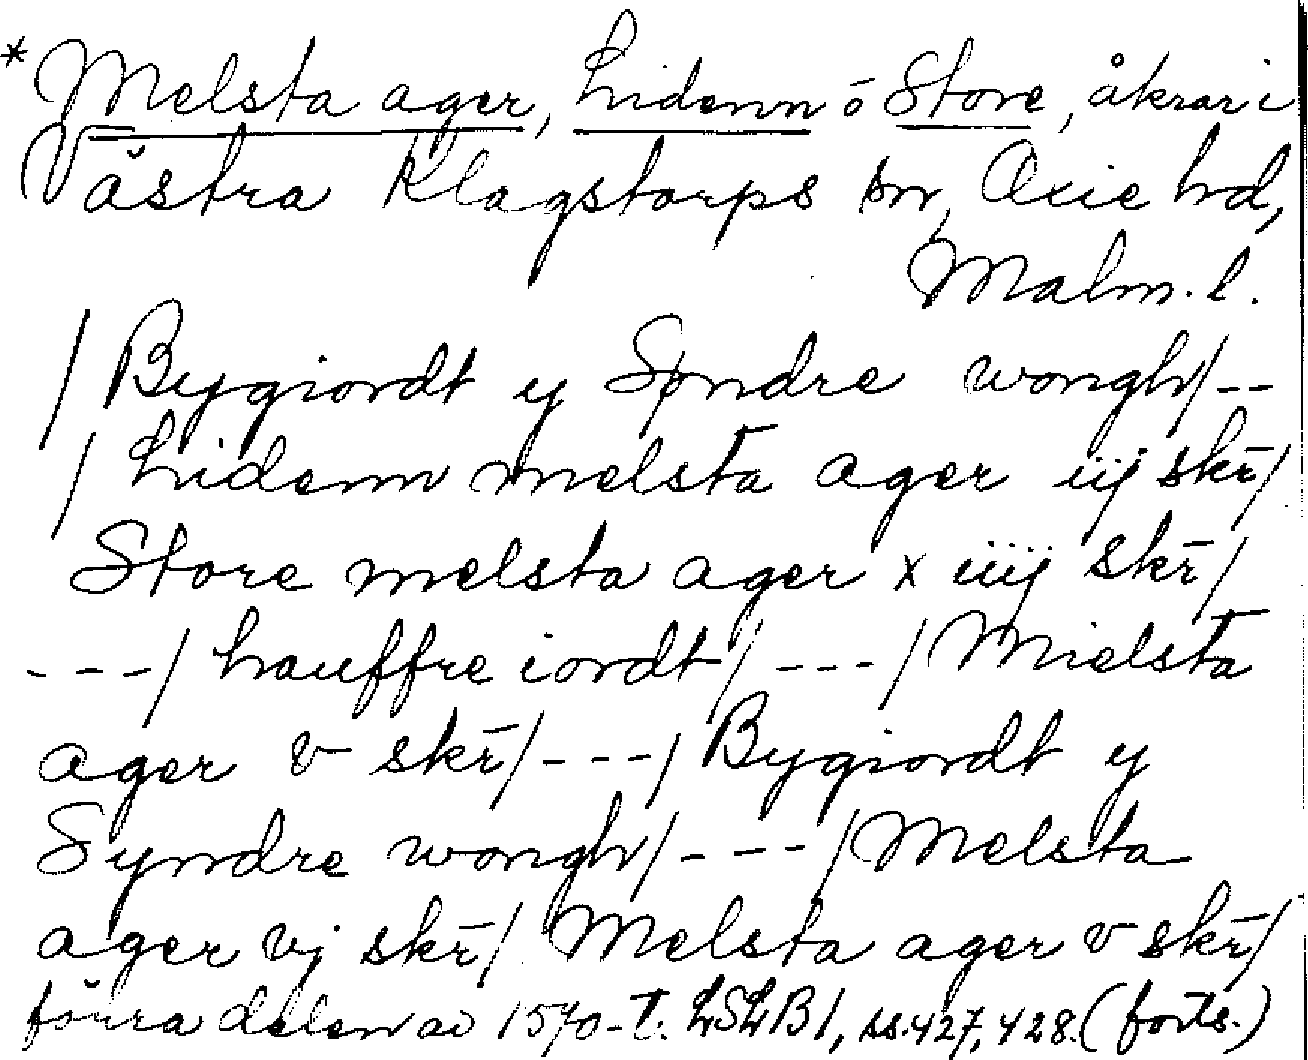 * Melsta ager, Lidenn o Store, åkrar i
Västra Klagstorps sn, Oxie hd,
Malm. l.
/ Bygiordt y Søndre wongh/--
/ Lidenn melsta ager iij skr̄/
Store melsta ager x iiij skr̄/
---/ hauffre iordt/ ---/ Mielsta
ager v skr̄/---/ Bygiordt y
Syndre wongh/---/ Melsta
ager vj skr̄/ Melsta ager v skr̄/
förra delen av 1570-t. LSLB1, ss. 427, 428. (forts.)